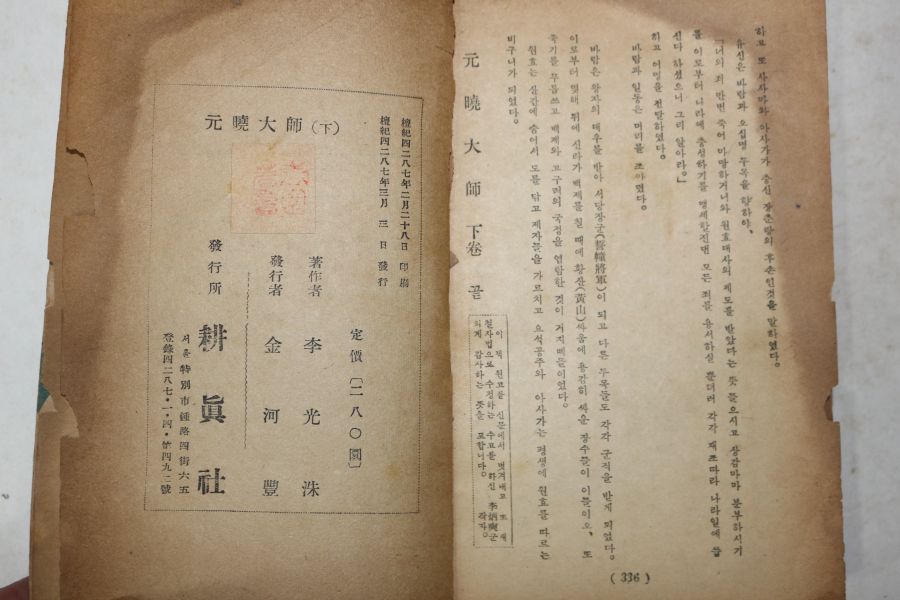 하고 또 사사마와 아사가가 충신 장춘랑의 후손인것을 말하였다.
유신은 바람과 오십명 두목을 향하야,
「너의 죄 만번 죽어 마땅하거니와 원효대사의 제도를 받았다는 뜻 들으시고 상감마마 분부하시기
를 이로부터 나라에 충성하기를 맹세할진댄 모든 죄를 용서하실 뿐더러 각각 재조따라 나라일에 쓸
신다 하셨으니 그리 알아라.」
하고 어명을 전달하였다.
바람과 일동은 머리를 조아렸다.
바람은 왕자의 대우를 받아 서당장군(誓幢將軍)이 되고 다른 두목들도 각각 군직을 받게 되었다.
이로부터 몇해 뒤에 신라가 백제를 칠 때에 황산(黃山)싸움에 용감히 싸운 장수들이 이들이오, 또
죽기를 무릅쓰고 백제와 고구려의 국정을 염탐한 것이 거지떼들이었다.
원효는 산간에 숨어서 도를 닦고 제자들을 가르치고 요석공주와 아사가는 평생에 원효를 따르는
비구니가 되었다.
元曉大師 下卷 끝
이 적 원고를 신문에서 벗겨내고 또 새
철자법으로 수정하는 수고를 하신 李炳
에게 감사하는 뜻을 표합니다. 작자.
(336)
檀紀四二八七年二月二十八日 印刷
檀紀四二八七年三月 三 日 發行
元曉大師(下)
定價 〔二八〇圓〕
著作者 李光洙
發行者 金河豐
發行所 耕眞社
서울特別市鍾路四街六五
登錄四二八七・一・四・第四九二號